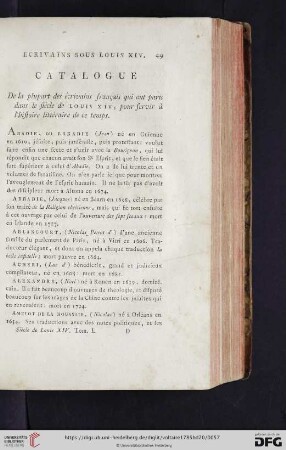 ECRIVAINS SOUS LOUIS XIV. 49
CATALOGUE
De la plupart des écrivains français qui ont paru
dans le siècle de LOUIS XIV, pour servir à
l'histoire littéraire de ce temps.
ABADIE, OU LABADIE (Jean) né en Guienne
en 1610, jésuite, puis janséniste, puis protestant, voulut
faire enfin une secte et s'unir avec la Bourignon, qui lui
répondit que chacun avait son St Esprit, et que le sien était
fort supérieur à celui d'Abadie. On a de lui trente et un
volumes de fanatisme. On n'en parle ici que pour montrer
l'aveuglement de l'esprit humain. Il ne laissa pas d'avoir
des disciples: mort à Altona en 1674.
ABBADIE, (Jacques) né en Béarn en 1658, célèbre par
son traité de la Religion chrétienne, mais qui fit tort ensuite
à cet ouvrage par celui de l'ouverture des sept sceaux: mort
en Irlande en 1727.
ABLANCOURT, (Nicolas Perrot d') d'une ancienne
famille du parlement de Paris, né à Vitri en 1606. Tra-
ducteur élégant, et dont on appela chaque traduction la
belle infidelle; mort pauvre en 1664.
ACHERI, (Luc d') bénédictin, grand et judicieux
compilateur, né en 1609: mort en 1685.
ALEXANDRE, (Noël) né à Rouen en 1639, domini-
cain. Il a fait beaucoup d'ouvrages de théologie, et disputé
beaucoup sur les usages de la Chine contre les jésuites qui
en revenaient: mort en 1724.
AMELOT DE LA HOUSSAIE, (Nicolas) né à Orléans en
1634. Ses traductions avec des notes politiques, et les
Siècle de Louis XIV. Tom. I. D
http://digi.ub.uni-heidelberg.de/diglit/voltaire1785bd20/0057
© Universitätsbibliothek Heidelberg
gefördert durch die
DFG